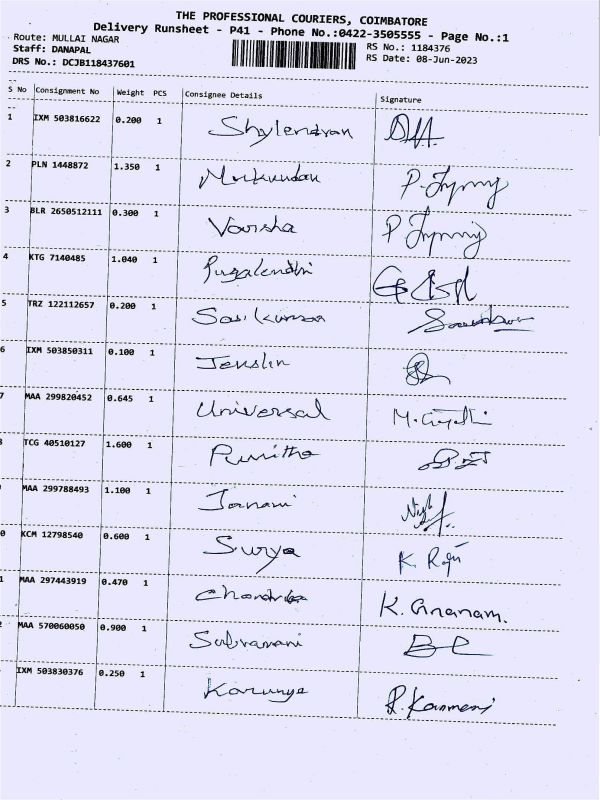 THE PROFESSIONAL COURIERS, COIMBATORE
Delivery Runsheet - P41 - Phone No.:0422-3505555 - Page No.:1
Route: MULLAI NAGAR
RS No.: 1184376
Staff: DANAPAL
RS Date: 08-Jun-2023
DRS No.: DCJB118437601
S No Consignment No Weight PCS Consignee Details Signature
1 IXM 503816622 0.200 1 Shylendran
2 PLN 1448872 1.350 1 Mukundan
3 BLR 2650512111 0.300 1 Varsha
4 KTG 7140485 1.040 1 Pugalendhi
5 TRZ 122112657 0.200 1 Sasikumar
6 IXM 503850311 0.100 1 Jenslin
7 MAA 299820452 0.645 1 Universal
TCG 40510127 1.600 1 Punitha
MAA 299788493 1.100 1 Janani
0 KCM 12798540 0.600 1 Surya K. Raji
1 MAA 297443919 0.470 1 Chandrika K. Gnanam.
MAA 570060050 0.900 1 Subramani
IXM 503830376 0.250 1 Karunya R. Kanmani